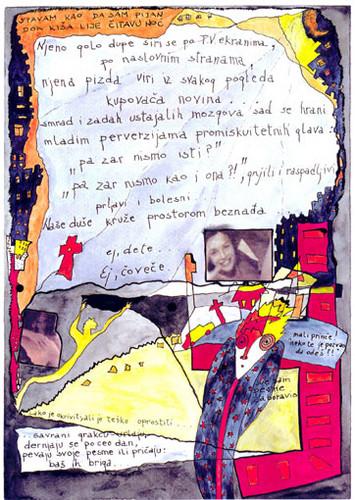 SPAVAM KAO DA SAM PIJAN
DOK KIŠA LIJE ČITAVU NOĆ
Njeno golo dupe širi se po T.V. ekranima,
po naslovnim stranama,
njena pizda viri iz svakog pogleda
kupovača novina...
smrad i zadah ustajalih mozgova sad se hrani
mladim perverzijama promiskuitetnih glava:
"pa zar nismo isti?"
"pa zar nismo kao i ona?!", gnjili i raspadljivi
prljavi i bolesni...
Naše duše kruže prostorom beznađa
ej, dete...
Ej, čoveče...
mali prinče,
neko te je pozvao
da odeš!!"
sam
zaboravio
ako je okrivitsjali je teško oprostiti...
...gavrani grakću
dernjaju se po ceo dan,
pevaju svoje pesme ili pričaju:
baš ih briga.